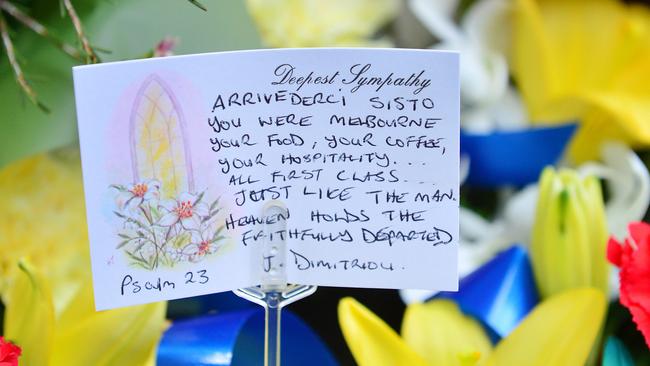 Deepest Sympathy
ARRIVEDERCI SISTO
YOU WERE MELBOURNE
YOUR FOOD, YOUR COFFEE,
YOUR HOSPITALITY....
ALL FIRST CLASS....
JUST LIKE THE MAN.
HEAVEN HOLDS THE
FAITHFULLY DEPARTED
J. DIMITRIOU.
Psalm 23